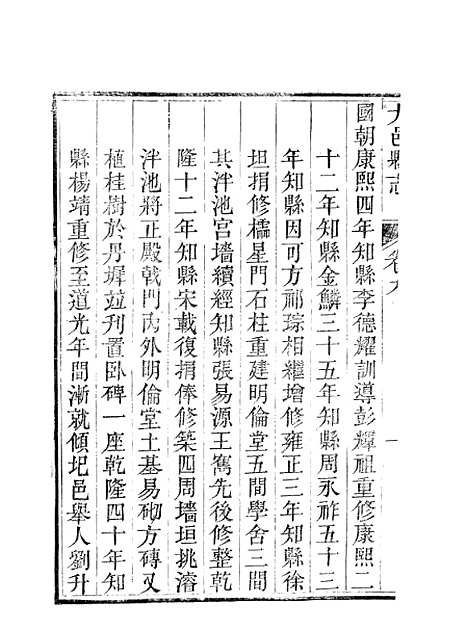 大邑縣志 卷九 一
國朝康熙四年知縣李德耀訓導彭耀祖重修康熙二
十二年知縣金鱗三十五年知縣周永祚五十三
年知縣因可方祁琮相繼增修雍正三年知縣徐
坦捐修櫺星門石柱重建明倫堂五間學舍三間
其泮池宮墻續經知縣張易源王寯先後修整乾
隆十二年知縣宋載復捐俸修築四周墻垣挑濬
泮池將正殿戟門內外明倫堂土基易砌方磚又
植桂樹於丹墀並刋置卧碑一座乾隆四十年知
縣楊靖重修至道光年間漸就傾圮邑舉人劉升